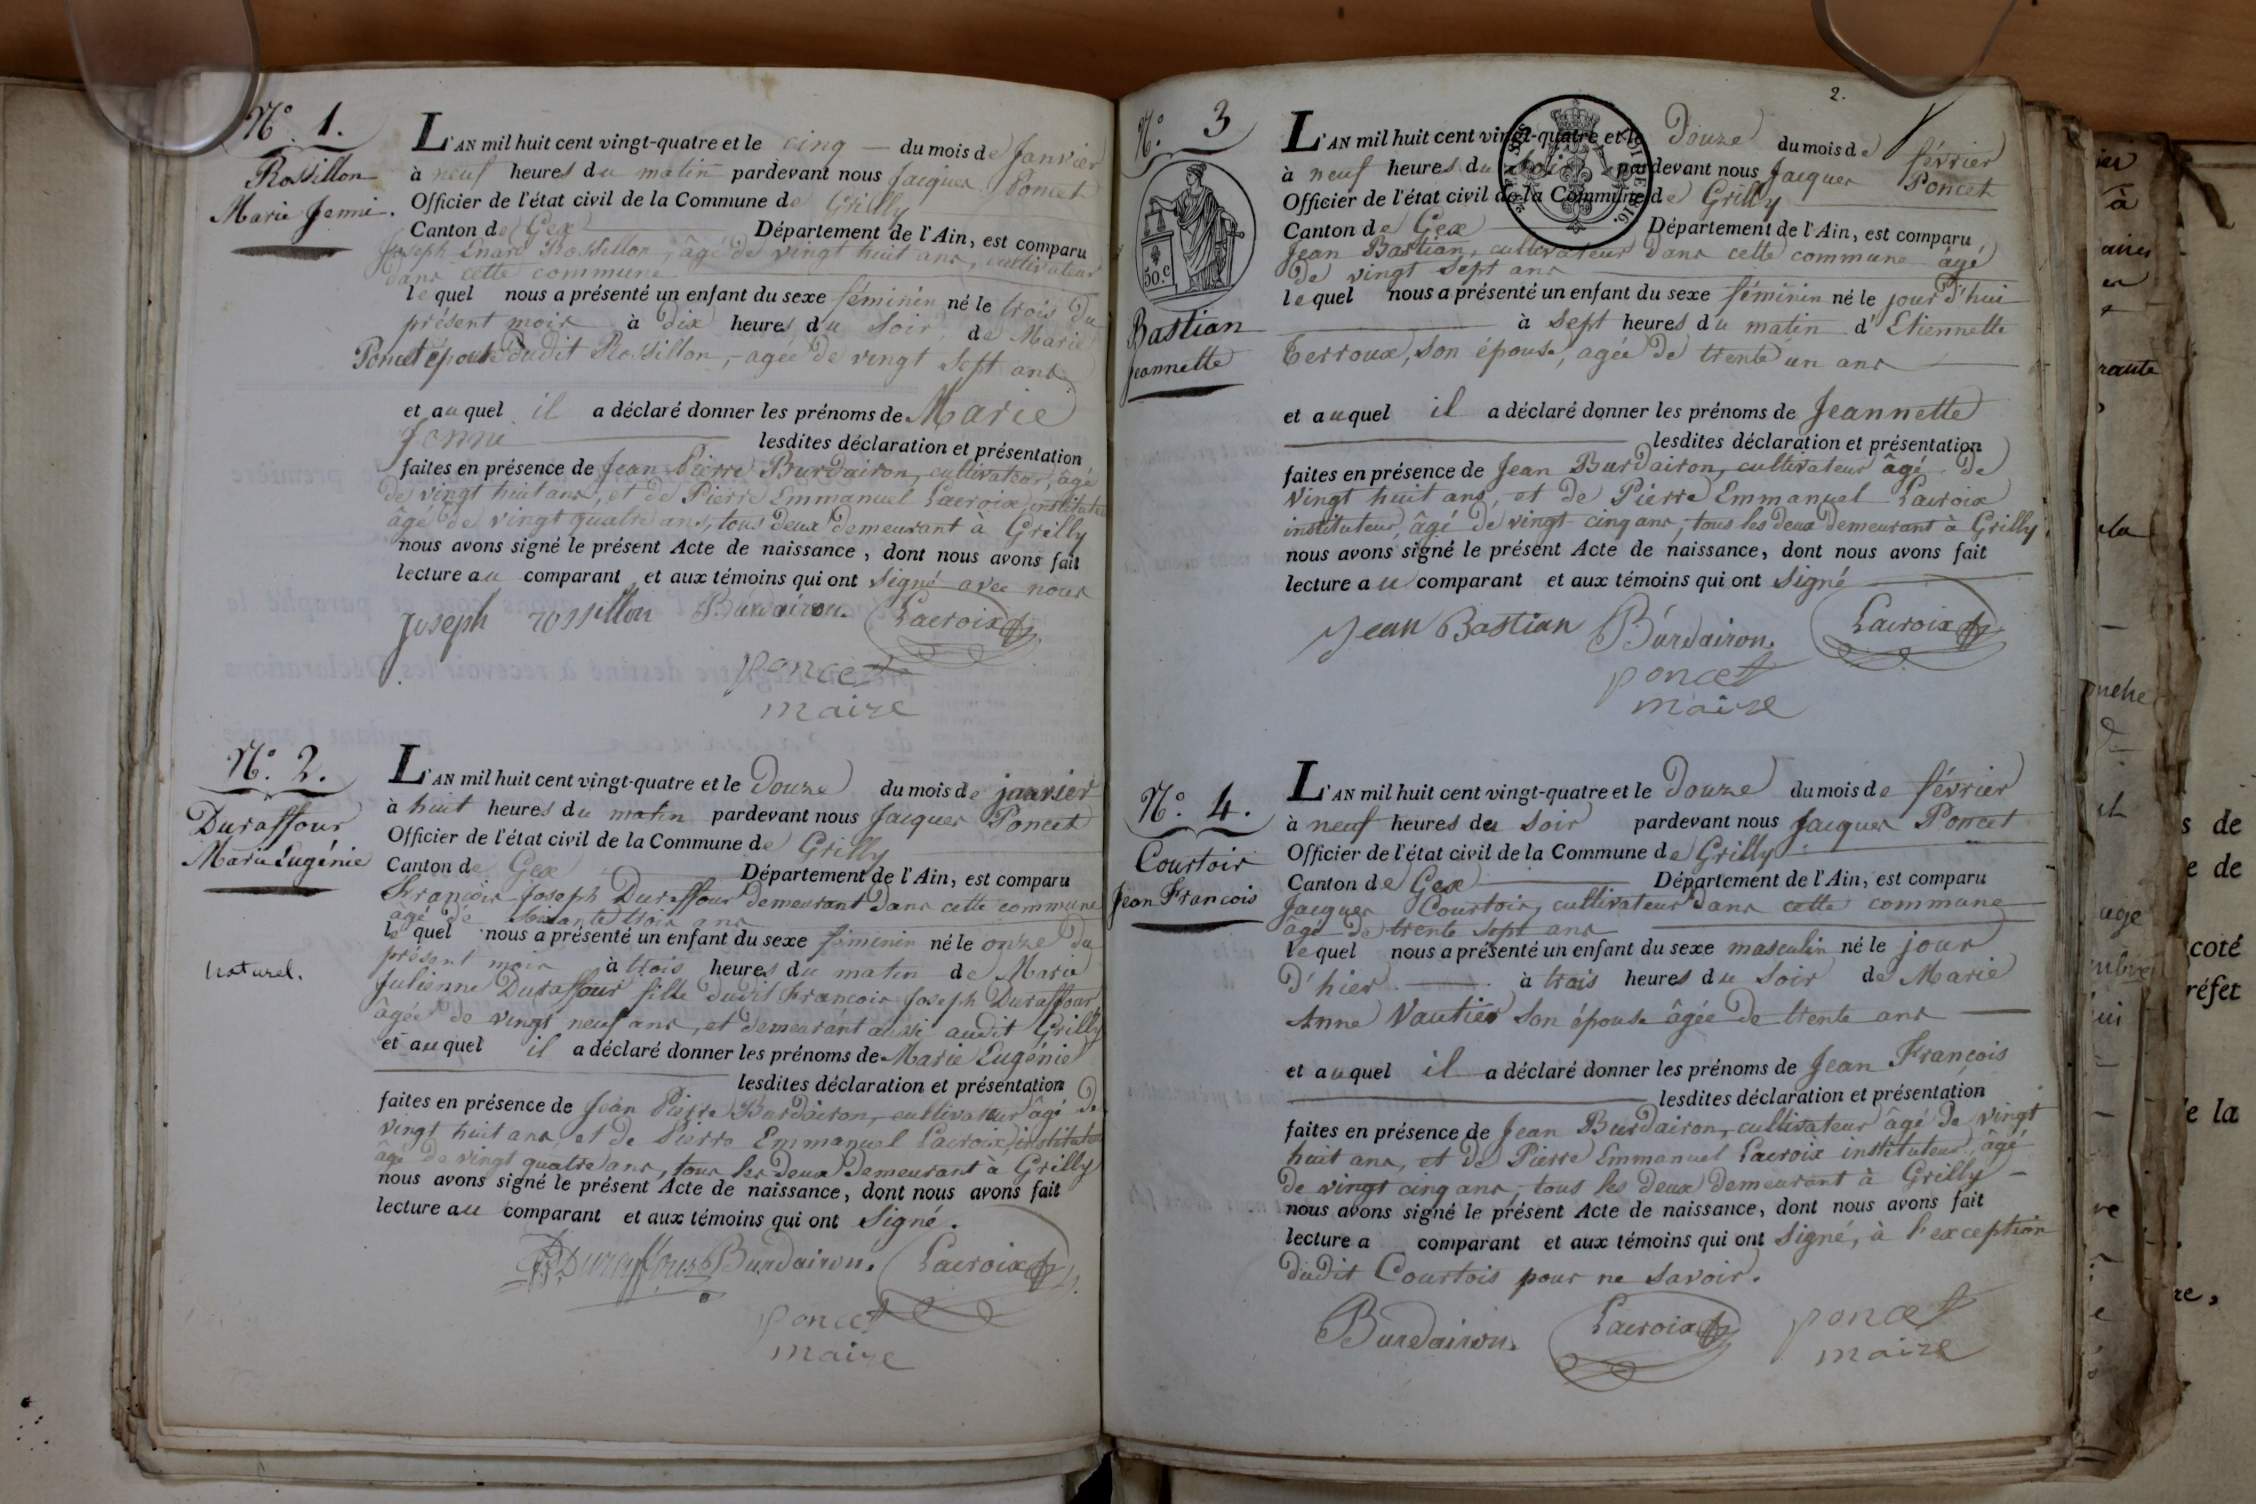 N.° 1.
Rossillon
Marie Jenni.
L'AN mil huit cent vingt-quatre et le cinq du mois de Janvier
à neuf heures du matin pardevant nous Jacques Poncet
Officier de l'état civil de la Commune de Grilly
Canton de Gex Département de l'Ain, est comparu
Joseph Rossillon, âgé de vingt huit ans, cultivateur
dans cette commune
lequel nous a présenté un enfant du sexe féminin né le trois du
présent mois à dix heures du soir de Marie
Poncet épouse dudit Rossillon, agée de vingt sept ans
et auquel il a déclaré donner les prénoms de Marie
Jenni lesdites déclaration et présentation
faites en présence de Jean Pierre Burdairon, cultivateur, âgé
de vingt huit ans, et de Pierre Emmanuel Lacroix, instituteur
âgé de vingt quatre ans, tous deux demeurant à Grilly
nous avons signé le présent Acte de naissance, dont nous avons fait
lecture au comparant, et aux témoins qui ont signé avec nous
Joseph rossillon Burdairon. Lacroix
poncet
maire
N.° 2.
Duraffour
Marie Eugénie
naturel.
L'AN mil huit cent vingt-quatre et le Douze du mois de janvier
à huit heures du matin pardevant nous Jacques Poncet
Officier de l'état civil de la Commune de Grilly
Canton de Gex Département de l'Ain, est comparu
François Joseph Duraffour demeurant dans cette commune
âgé de soixante trois ans
lequel nous a présenté un enfant du sexe féminin né le onze du
présent mois à trois heures du matin de Marie
Julienne Duraffour fille dudit François Joseph Duraffour
âgée de vingt neuf ans, et demeurant aussi audit Grilly
et auquel il a déclaré donner les prénoms de Marie Eugénie
lesdites déclaration et présentation
faites en présence de Jean Pierre Burdairon, cultivateur âgé de
vingt huit ans, et de Pierre Emmanuel Lacroix, instituteur
âgé de vingt quatre ans, tous les deux demeurant à Grilly
nous avons signé le présent Acte de naissance, dont nous avons fait
lecture au comparant et aux témoins qui ont signé.
Duraffour Burdairon. Lacroix
poncet
maire
2.
N.° 3
50.c
Bastian
Jeannette
L'AN mil huit cent vingt-quatre et le Douze du mois de février
à neuf heures du soir pardevant nous Jacques Poncet
Officier de l'état civil de la Commune de Grilly
Canton de Gex Département de l'Ain, est comparu
Jean Bastian, cultivateur dans cette commune âgé
de vingt sept ans
lequel nous a présenté un enfant du sexe féminin né le jour d'hui
à sept heures du matin d'Etiennette
Terroux, son épouse, agée de trente un ans
et auquel il a déclaré donner les prénoms de Jeannette
lesdites déclaration et présentation
faites en présence de Jean Burdairon, cultivateur âgé de
vingt huit ans, et de Pierre Emmanuel Lacroix
instituteur, âgé de vingt cinq ans, tous les deux demeurant à Grilly.
nous avons signé le présent Acte de naissance, dont nous avons fait
lecture au comparant et aux témoins qui ont signé
Jean Bastian Burdairon. Lacroix
poncet
maire
N.° 4.
Courtois
Jean François
L'AN mil huit cent vingt-quatre et le Douze du mois de février
à neuf heures du soir pardevant nous Jacques Poncet
Officier de l'état civil de la Commune de Grilly
Canton de Gex Département de l'Ain, est comparu
Jacques Courtois, cultivateur dans cette commune
âgé de trente sept ans
lequel nous a présenté un enfant du sexe masculin né le jour
d'hier à trois heures du soir de Marie
Anne Vautier son épouse âgée de trente ans
et auquel il a déclaré donner les prénoms de Jean François
lesdites déclaration et présentation
faites en présence de Jean Burdairon, cultivateur âgé de vingt
huit ans, et de Pierre Emmanuel Lacroix instituteur, âgé
de vingt cinq ans, tous les deux demeurant à Grilly
nous avons signé le présent Acte de naissance, dont nous avons fait
lecture a comparant et aux témoins qui ont signé, à l'exception
dudit Courtois pour ne savoir.
Burdairon. Lacroix poncet
maire